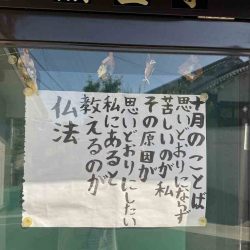 十月のことば
思いどおりにならず
苦しいのが私
その原因が
思いどおりにしたい
私にあると
教えるのが
仏法